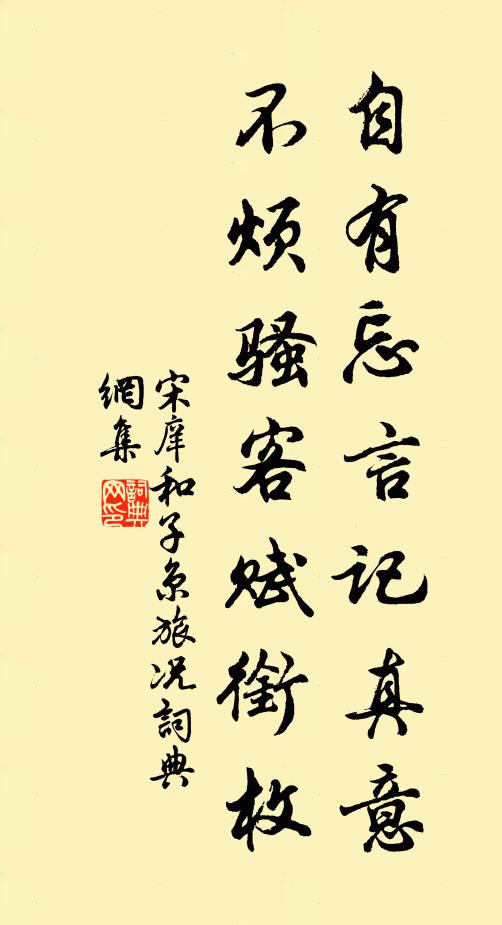 自有忘言记真意
不烦骚客赋衔枚
宋庠和子京旅况词典
網集
詞典網印